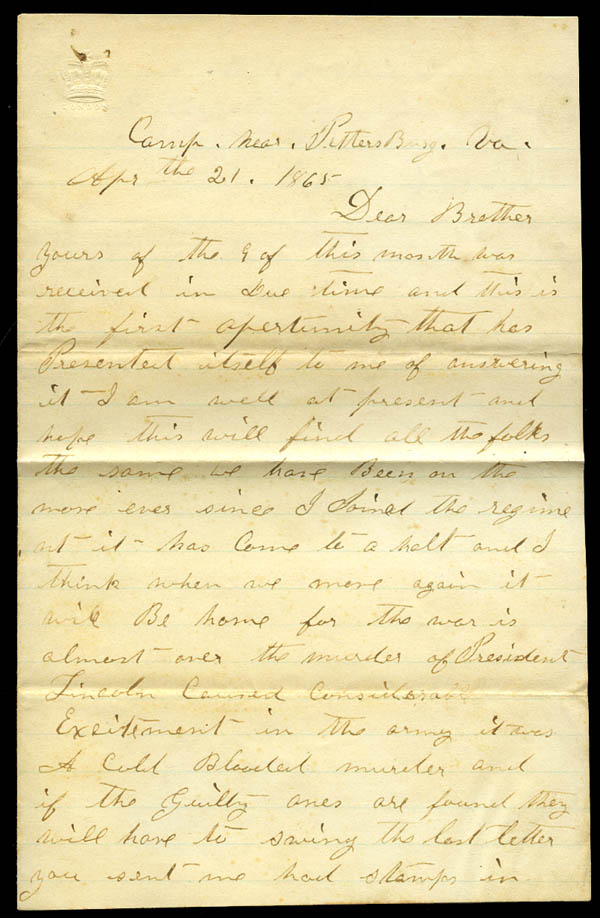 Camp. near. Petters Burg. Va.
Apr the 21. 1865
Dear Brother
yours of the 9 of this month was
received in Due time and this is
the first apertunity that has
Presented itself to me of answering
it I am well at present and
hope this will find all the folks
the same we have Been on the
move ever since I Joined the regime
nt it has Come to a halt and I
think when we move again it
will Be home for the war is
almost over the murder of President
Lincoln Caused Considerable
Excitement in the army it was
A Cold Blooded murder and
if the Guilty ones are found they
will have to swing the last letter
you sent me had stamps in